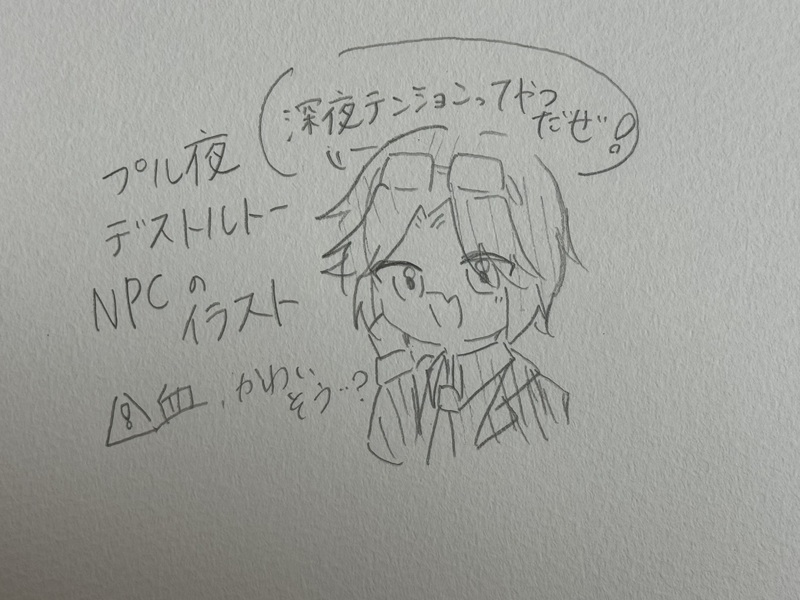 深夜テンションってやつ
だぜ!
プル夜
デストルトー
NPCの
イラスト
⚠血、かわい
そう…?